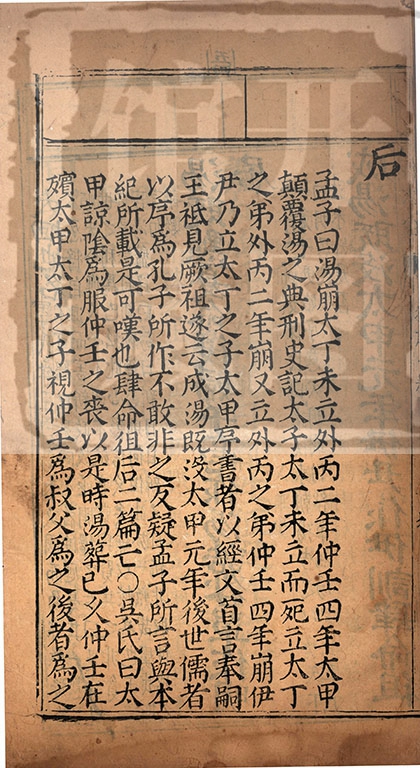 后
孟子曰湯崩太丁未立外丙二年仲壬四年太甲
顛覆湯之典刑史記太子太丁未立而死立太丁
之弟外丙二年崩又立外丙之弟仲壬四年崩伊
尹乃立太丁之子太甲序書者以經文首言奉嗣
王祗見厥祖遂云成湯既沒太甲元年後世儒者
以序爲孔子所作不敢非之反疑孟子所言與本
紀所載是可嘆也肆命徂后二篇亡○吳氏曰太
甲諒陰爲服仲壬之喪以是時湯葬已久仲壬在
殯太甲太丁之子視仲壬爲叔父爲之後者爲之